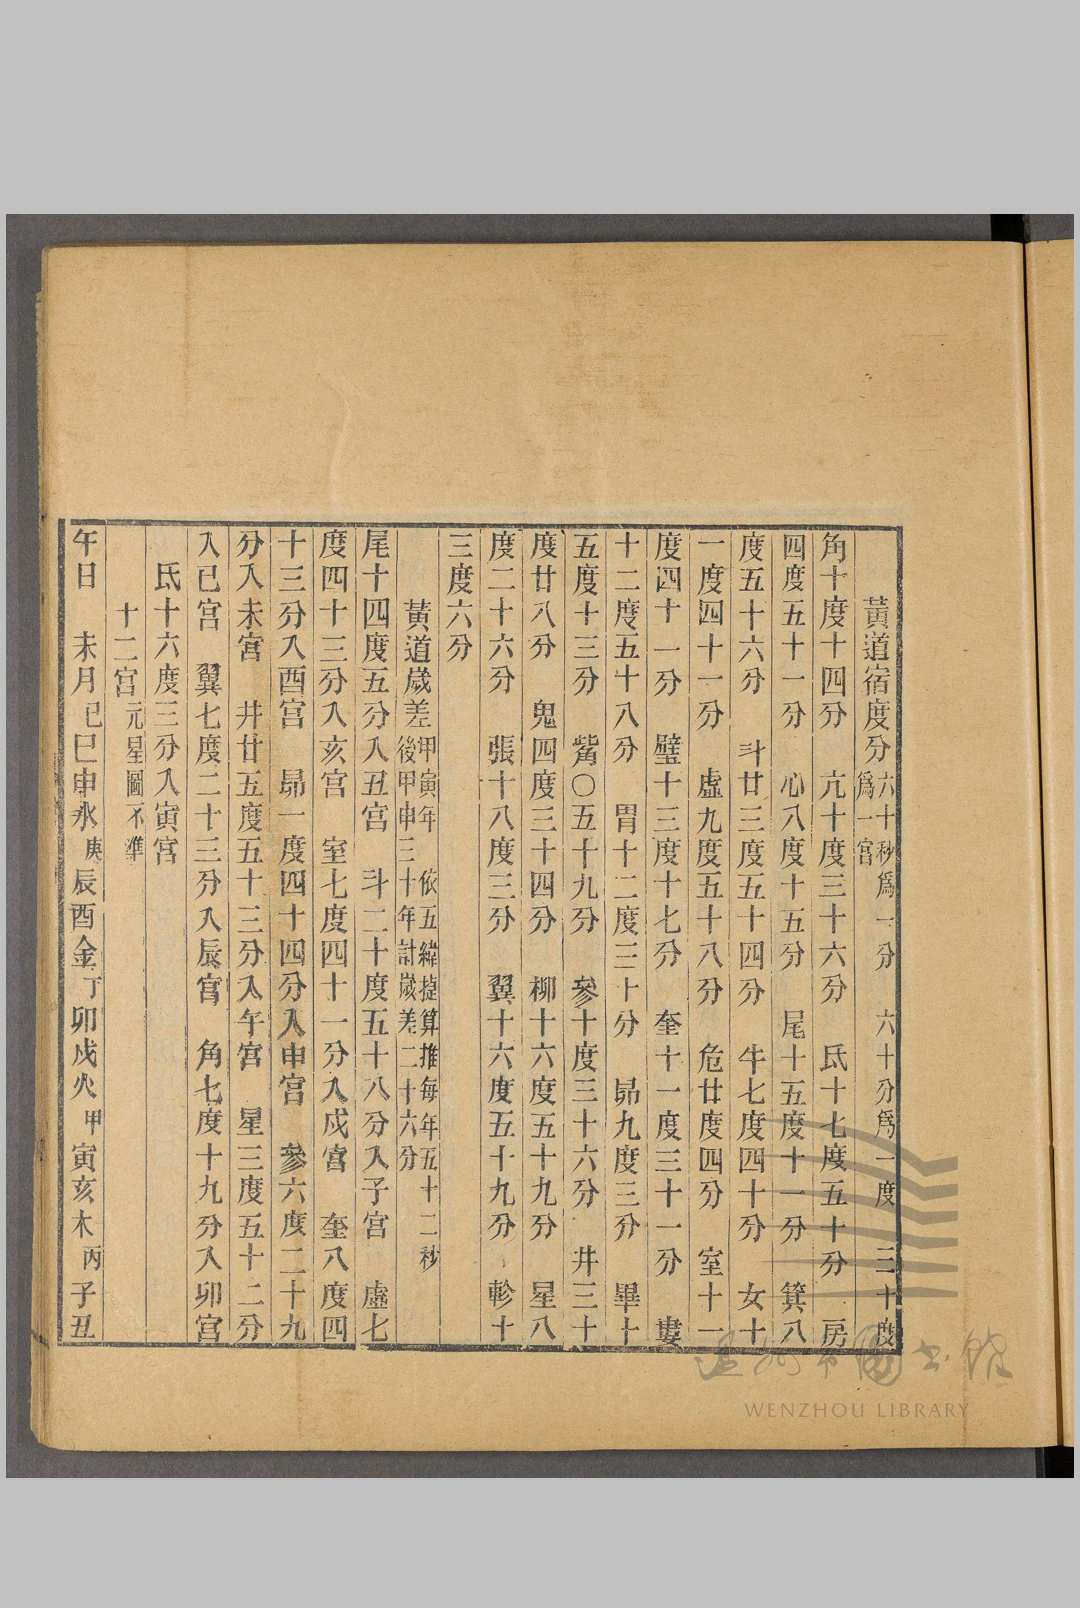 黃道宿度分六十秒爲一分 六十分爲一度 三十度爲一宮
角十度十四分 亢十度三十六分 氐十七度五十分 房
四度五十一分 心八度十五分 尾十五度十一分 箕八
度五十六分 斗廿三度五十四分 牛七度四十分 女十
一度四十一分 虛九度五十八分 危廿度四分 室十一
度四十一分 璧十三度十七分 奎十一度三十一分 婁
十二度五十八分 胃十二度三十分 昴九度三分 畢十
五度十三分 觜〇五十九分 參十度三十六分 井三十
度廿八分 鬼四度三十四分 柳十六度五十九分 星八
度二十六分 張十八度三分 翼十六度五十九分 軫十
三度六分
黃道歲差甲寅年 依五緯捷算推每年五十二秒後甲申三十年計歲差二十六分
尾十四度五分入丑宮 斗二十度五十八分入子宮 虛七
度四十三分入亥宮 室七度四十一分入戌宮 奎八度四
十三分入酉宮 昴一度四十四分入申宮 參六度二十九
分入未宮 井廿五度五十三分入午宮 星三度五十二分
入巳宮 翼七度二十三分入辰宮 角七度十九分入卯宮
氐十六度三分入寅宮
十二宮元星圖不準
午日 未月己巳申水庚辰酉金丁卯戌火甲寅亥木丙子丑
WENZHOU LIBRARY